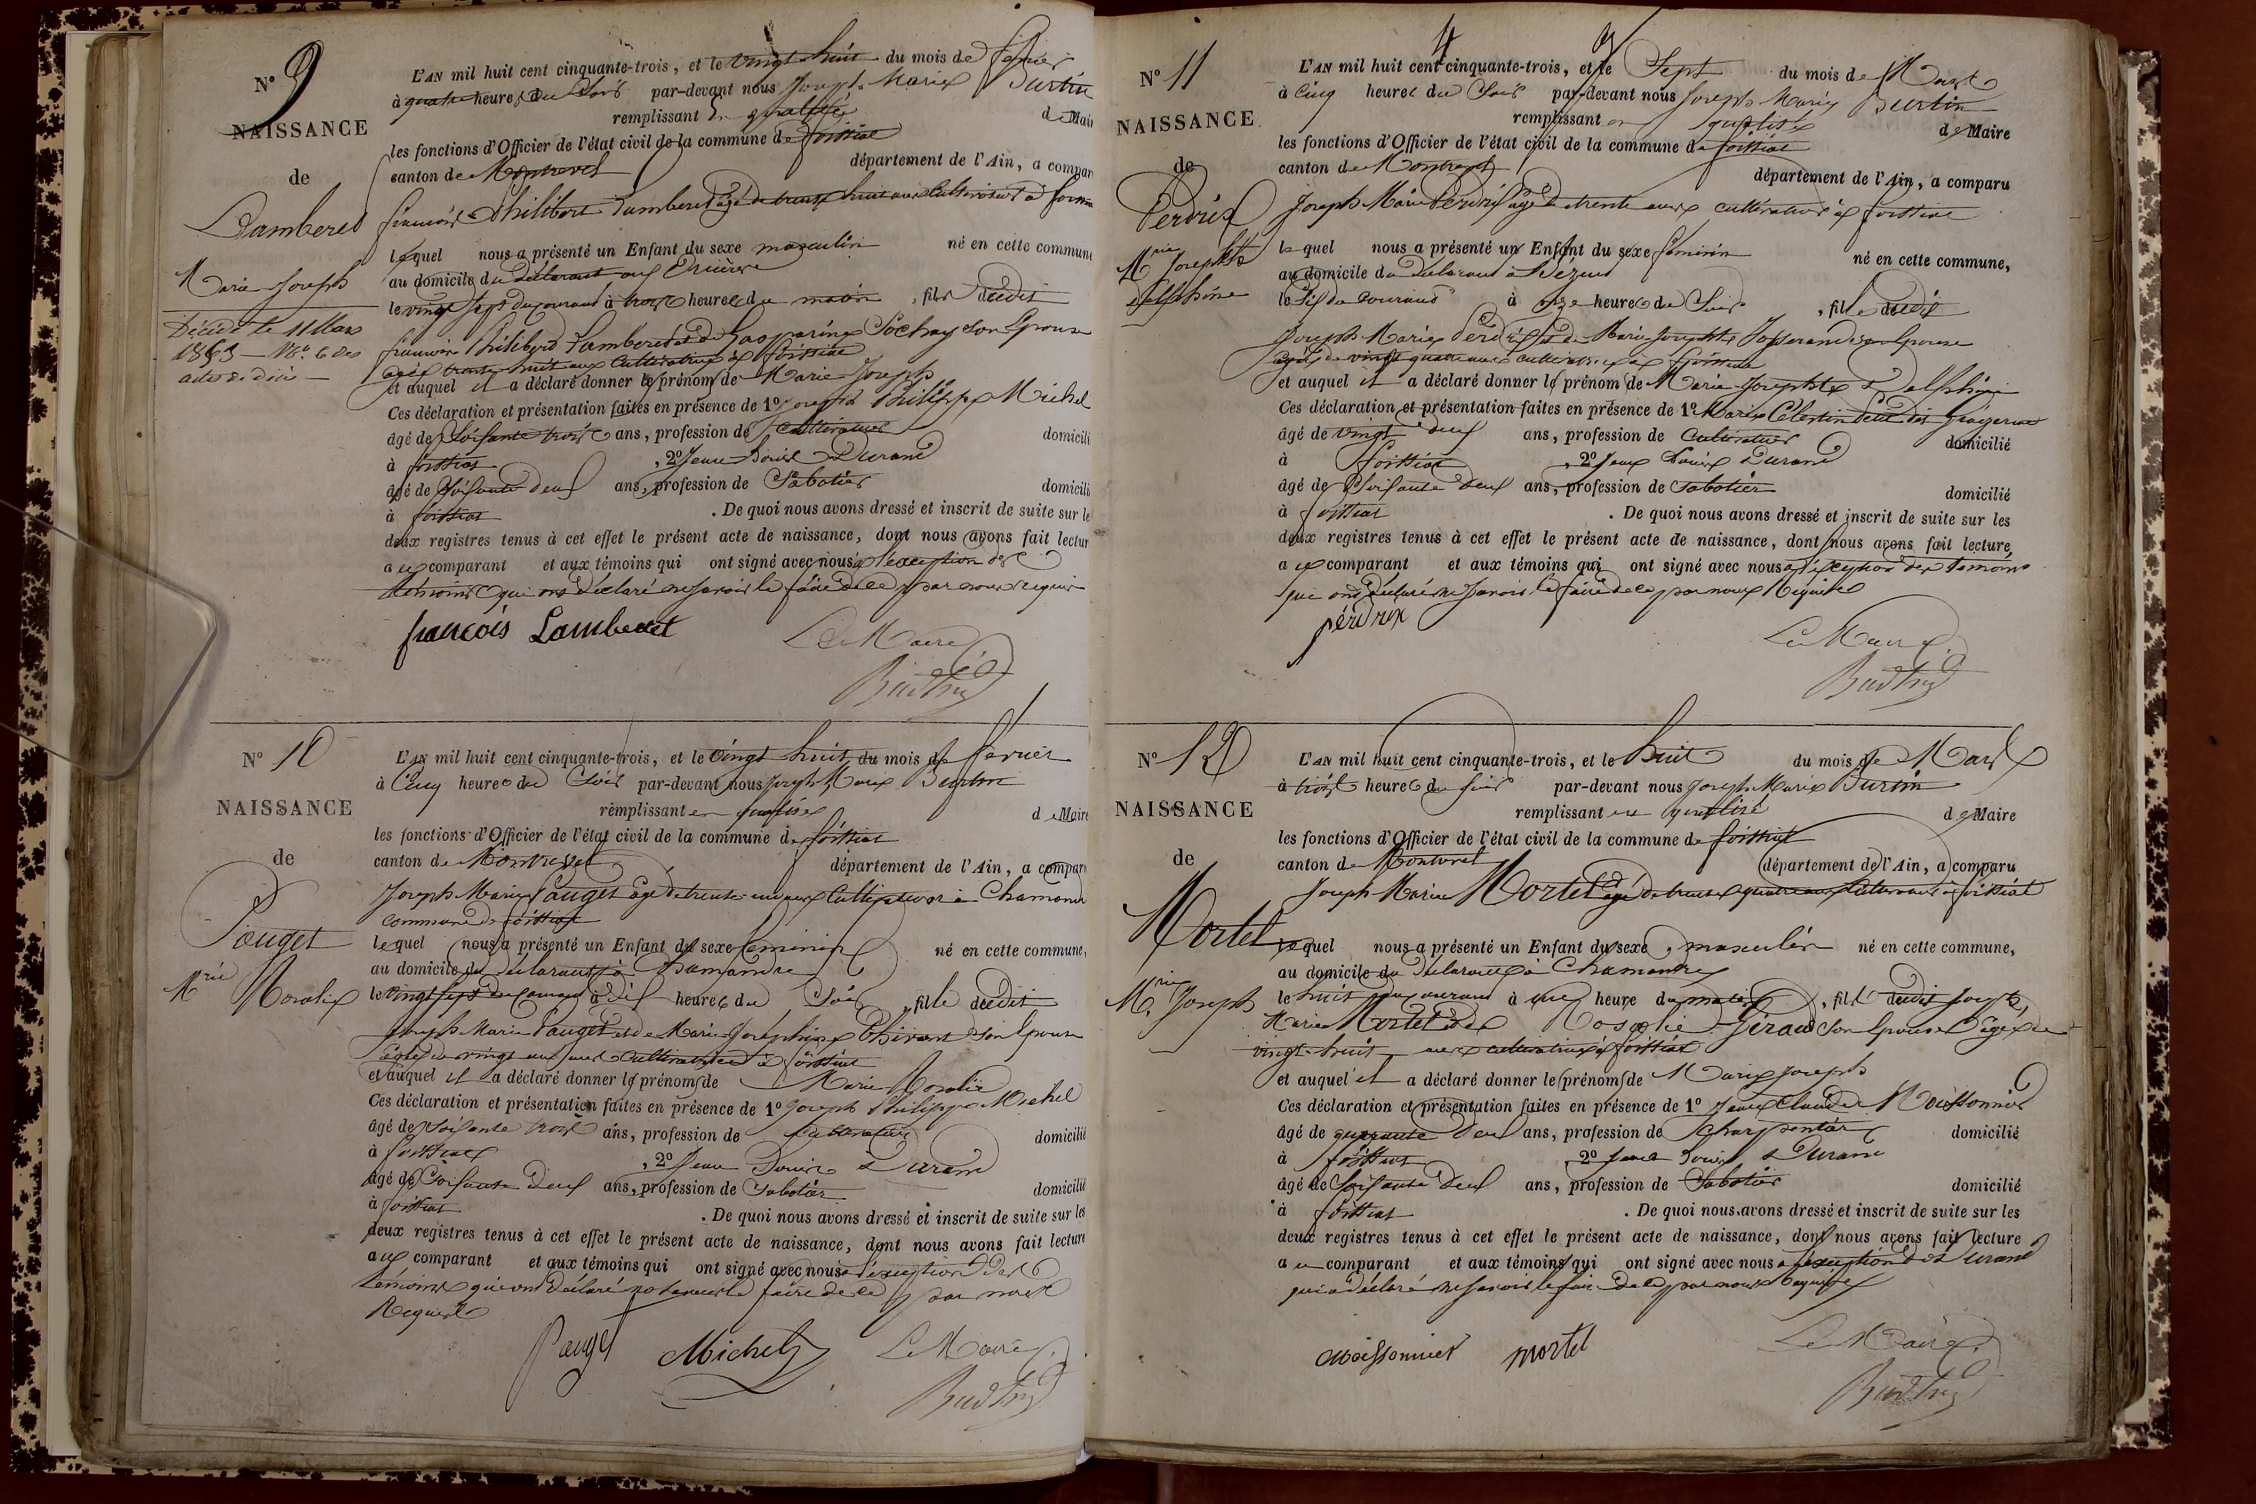 N° 9
NAISSANCE
de
Lamberet
Marie Joseph
Décédé le 11 Mars
1853 — N° 6 des
actes de décès —
L'AN mil huit cent cinquante-trois, et le vingt huit du mois de février
à quatre heures du Soir par-devant nous Joseph Marie Burtin
remplissant en qualité de Mair
les fonctions d'Officier de l'état civil de la commune de foissiat
canton de Montrevel département de l'Ain, a compar
françois Philibert Lamberet âgé de trente huit ans Cultivateur à foissia
lequel nous a présenté un Enfant du sexe masculin né en cette commun
au domicile du déclarant aux
le vingt sept du courant à trois heures du matin, fils dudit
françois Philibert Lamberet et de Gasparine Sochay son Epouse
agée trente huit ans Cultivatrice à foissiat
et auquel il a déclaré donner les prénoms de Marie Joseph
Ces déclaration et présentation faites en présence de 1° Joseph Philippe Michel
âgé de Soisante trois ans, profession de Cultivateur domicili
à foissiat, 2° Jean Louis Durand
âgé de Soisante deux ans, profession de Sabotier domicili
à foissiat. De quoi nous avons dressé et inscrit de suite sur le
deux registres tenus à cet effet le présent acte de naissance, dont nous avons fait lectur
au comparant et aux témoins qui ont signé avec nous à l'exception des
témoins qui ont déclaré ne savoir le faire de ce par nous requis
françois Lamberet Le Maire
Burtin
N° 10
NAISSANCE
de
Pauget
Mrie Rosalie
L'AN mil huit cent cinquante-trois, et le vingt huit du mois de février
à Cinq heures du Soir par-devant nous Joseph Marie Burtin
remplissant en qualité de Maire
les fonctions d'Officier de l'état civil de la commune de foissiat
canton de Montrevel département de l'Ain, a compar
Joseph Marie Pauget âgé de trente-un ans Cultivateur à Chamandr
commune de foissiat
lequel nous a présenté un Enfant du sexe féminin né en cette commune,
au domicile du déclarant à Chamandre
le vingt sept du courant à dix heures du Soir, fille dudit
Joseph Marie Pauget et de Marie Josephine son Epouse
agée de vingt ans Cultivatrice à foissiat
et auquel il a déclaré donner les prénoms de Marie Rosalie
Ces déclaration et présentation faites en présence de 1° Joseph Philippe Michel
âgé de Soisante trois ans, profession de Cultivateur domicilié
à foissiat, 2° Jean Louis Durand
âgé de Soisante deux ans, profession de Sabotier domicilié
à foissiat. De quoi nous avons dressé et inscrit de suite sur les
deux registres tenus à cet effet le présent acte de naissance, dont nous avons fait lecture
au comparant et aux témoins qui ont signé avec nous à l'exception des
témoins qui ont déclaré ne savoir le faire de ce par nous
Requis
Pauget Michel Le Maire
Burtin
4
N° 11
NAISSANCE
de
Perdrix
Mrie Josephte
Delphine
L'AN mil huit cent cinquante-trois, et le Sept du mois de Mars
à Cinq heures du Soir par-devant nous Joseph Marie Burtin
remplissant en qualité de Maire
les fonctions d'Officier de l'état civil de la commune de foissiat
canton de Montrevel département de l'Ain, a comparu
Joseph Marie Perdrix âgé de trente ans cultivateur à foissiat
lequel nous a présenté un Enfant du sexe féminin né en cette commune,
au domicile du déclarant à
le Six du courant à onze heures du Soir, fille dudit
Joseph Marie Perdrix et de Marie Josephte Josserand son Epouse
agée de vingt quatre ans cultivatrice à foissiat
et auquel il a déclaré donner les prénoms de Marie Josephte Delphine
Ces déclaration et présentation faites en présence de 1° Marie Célestin
âgé de vingt deux ans, profession de Cultivateur domicilié
à foissiat, 2° Jean Louis Durand
âgé de Soisante deux ans, profession de Sabotier domicilié
à foissiat. De quoi nous avons dressé et inscrit de suite sur les
deux registres tenus à cet effet le présent acte de naissance, dont nous avons fait lecture
au comparant et aux témoins qui ont signé avec nous à l'exception des témoins
qui ont déclaré ne savoir le faire de ce par nous Requis
perdrix
Le Maire
Burtin
N° 12
NAISSANCE
de
Mortel
Mrie Joseph
L'AN mil huit cent cinquante-trois, et le huit du mois de Mars
à trois heures du soir par-devant nous Joseph Marie Burtin
remplissant en qualité de Maire
les fonctions d'Officier de l'état civil de la commune de foissiat
canton de Montrevel département de l'Ain, a comparu
Joseph Marie Mortel âgé de trente quatre ans Cultivateur à foissiat
lequel nous a présenté un Enfant du sexe masculin né en cette commune,
au domicile du déclarant à Chamandre
le huit du courant à une heure du matin, fils dudit Joseph
Marie Mortel et de Rosalie Géraud son Epouse agée de
vingt-huit ans cultivatrice à foissiat
et auquel il a déclaré donner les prénoms de Marie Joseph
Ces déclaration et présentation faites en présence de 1° Jean Claude Moissonnier
âgé de quarante deux ans, profession de charpentier domicilié
à foissiat, 2° Jean Louis Durand
âgé de Soisante deux ans, profession de Sabotier domicilié
à foissiat. De quoi nous avons dressé et inscrit de suite sur les
deux registres tenus à cet effet le présent acte de naissance, dont nous avons fait lecture
au comparant et aux témoins qui ont signé avec nous à l'exception de Durand
qui a déclaré ne savoir le faire de ce par nous Requis
moissonnier mortel Le Maire
Burtin